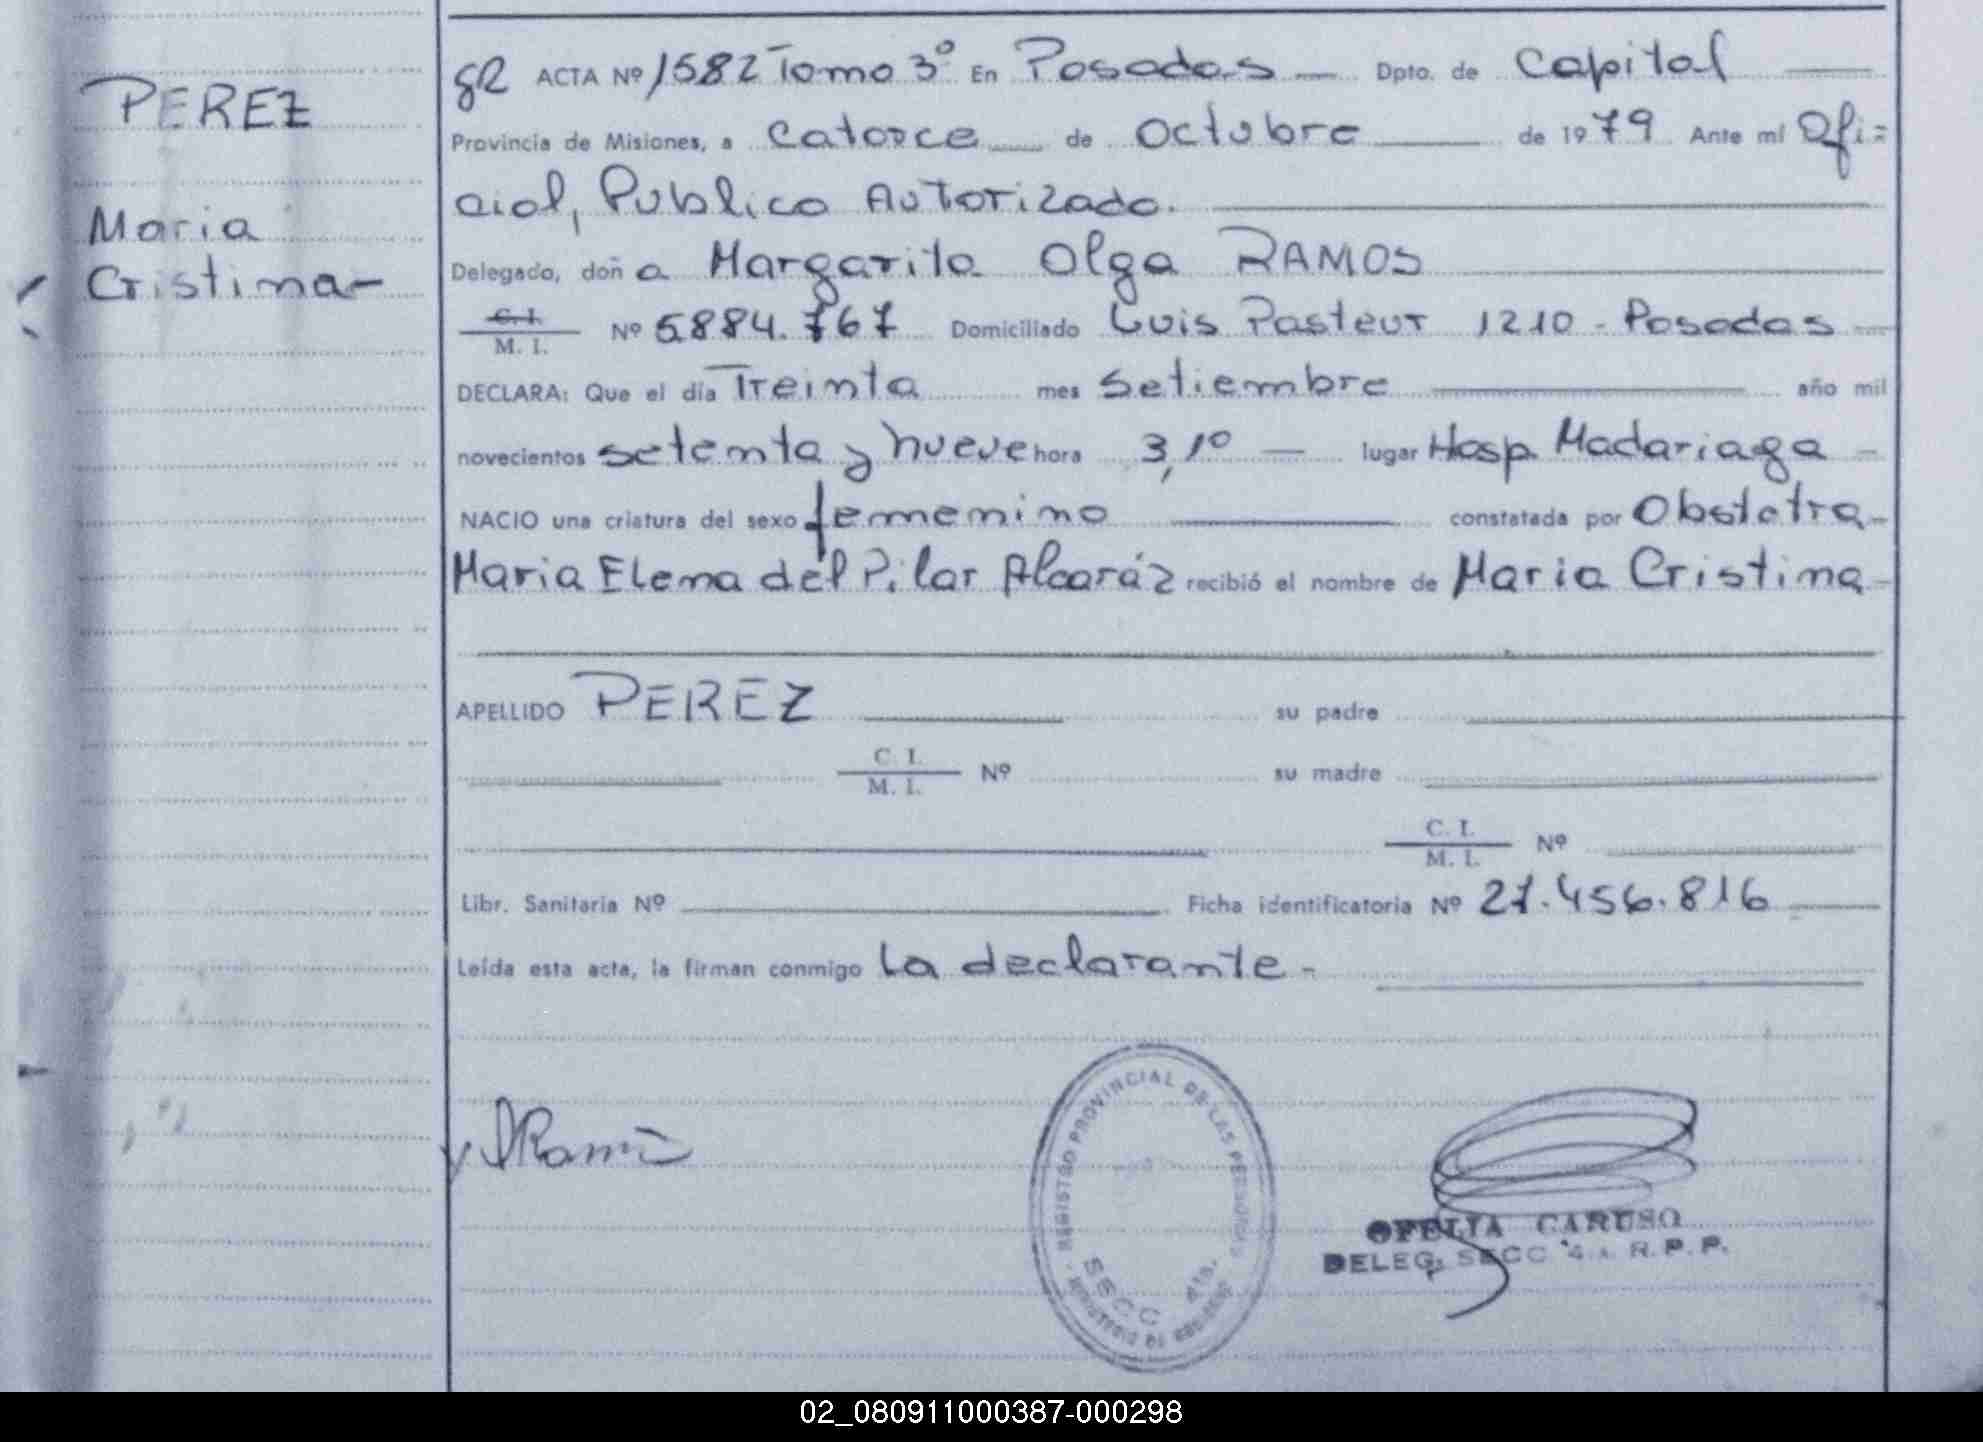 PEREZ
Maria
Cristina-
ACTA Nº 1582 Tomo 3º En Posadas Dpto. de Capital
Provincia de Misiones, a catorce de octubre de 1979 Ante mí Ofi=
cial, Publico Autorizado.
Delegado, doña Margarita Olga RAMOS
C. I.
M. I. Nº 5884.767 Domiciliado Luis Pasteur 1210 - Posadas
DECLARA: Que el día Treinta mes setiembre año mil
novecientos setenta y nueve hora 3,10 lugar Hosp. Madariaga
NACIO una criatura del sexo femenino constatada por Obstetra-
Maria Elena del Pilar Alcaráz recibió el nombre de Maria Cristina
APELLIDO PEREZ su padre
C. I.
M. I. Nº su madre
C. I.
M. I. Nº
Libr. Sanitaria Nº Ficha identificatoria Nº 27.456.816
Leída esta acta, la firman conmigo La declarante-
Ramos
REGISTRO PROVINCIAL DE LAS PERSONAS
SECC 4ta.
MINISTERIO DE GOBIERNO
OFELIA CARUSO
DELEG. SECC 4a. R. P. P.
02_080911000387-000298